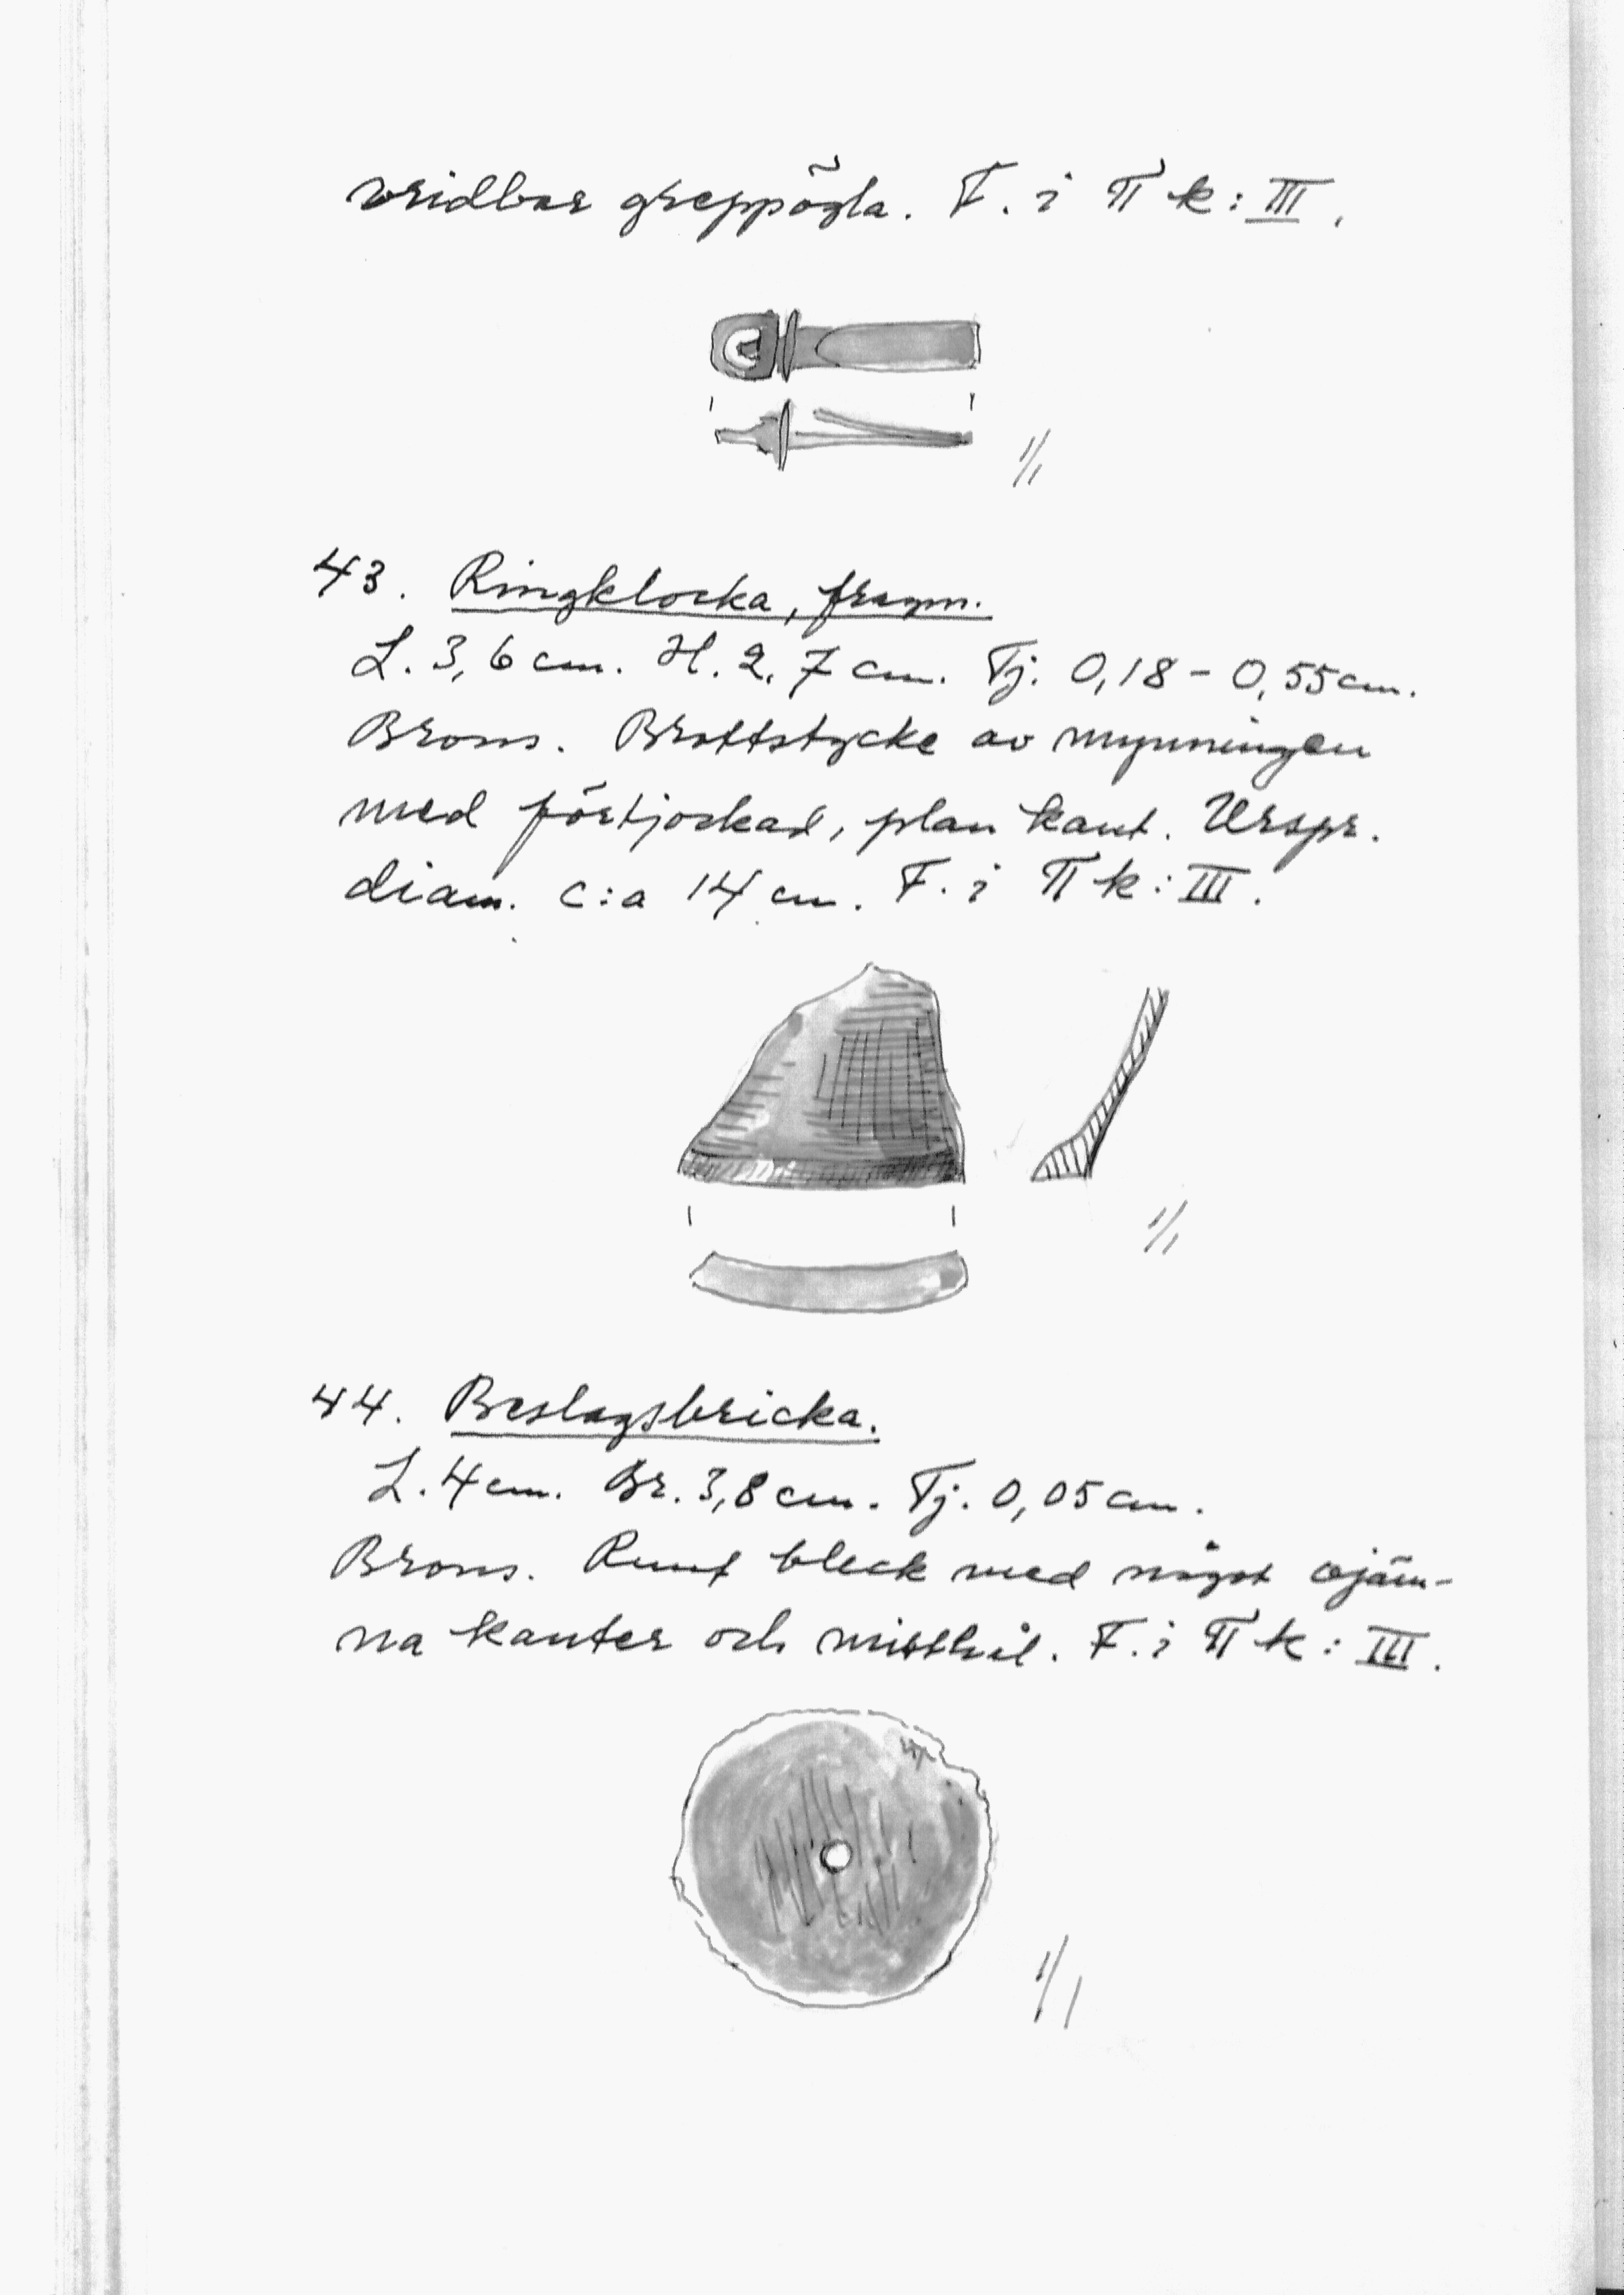 vridbar greppögla. F. i Π k: III.
1/1
43. Ringklocka, fragm.
L. 3,6 cm. H. 2,7 cm. Tj. 0,18 - 0,55 cm.
Brons. Brottstycke av mynningen
med förtjockad, plan kant. Urspr.
diam. c:a 14 cm. F. i Π k: III.
1/1
44. Beslagsbricka.
L. 4 cm. Br. 3,8 cm. Tj. 0,05 cm.
Brons. Runt bleck med något ojäm-
na kanter och mitthål. F. i Π k: III.
1/1